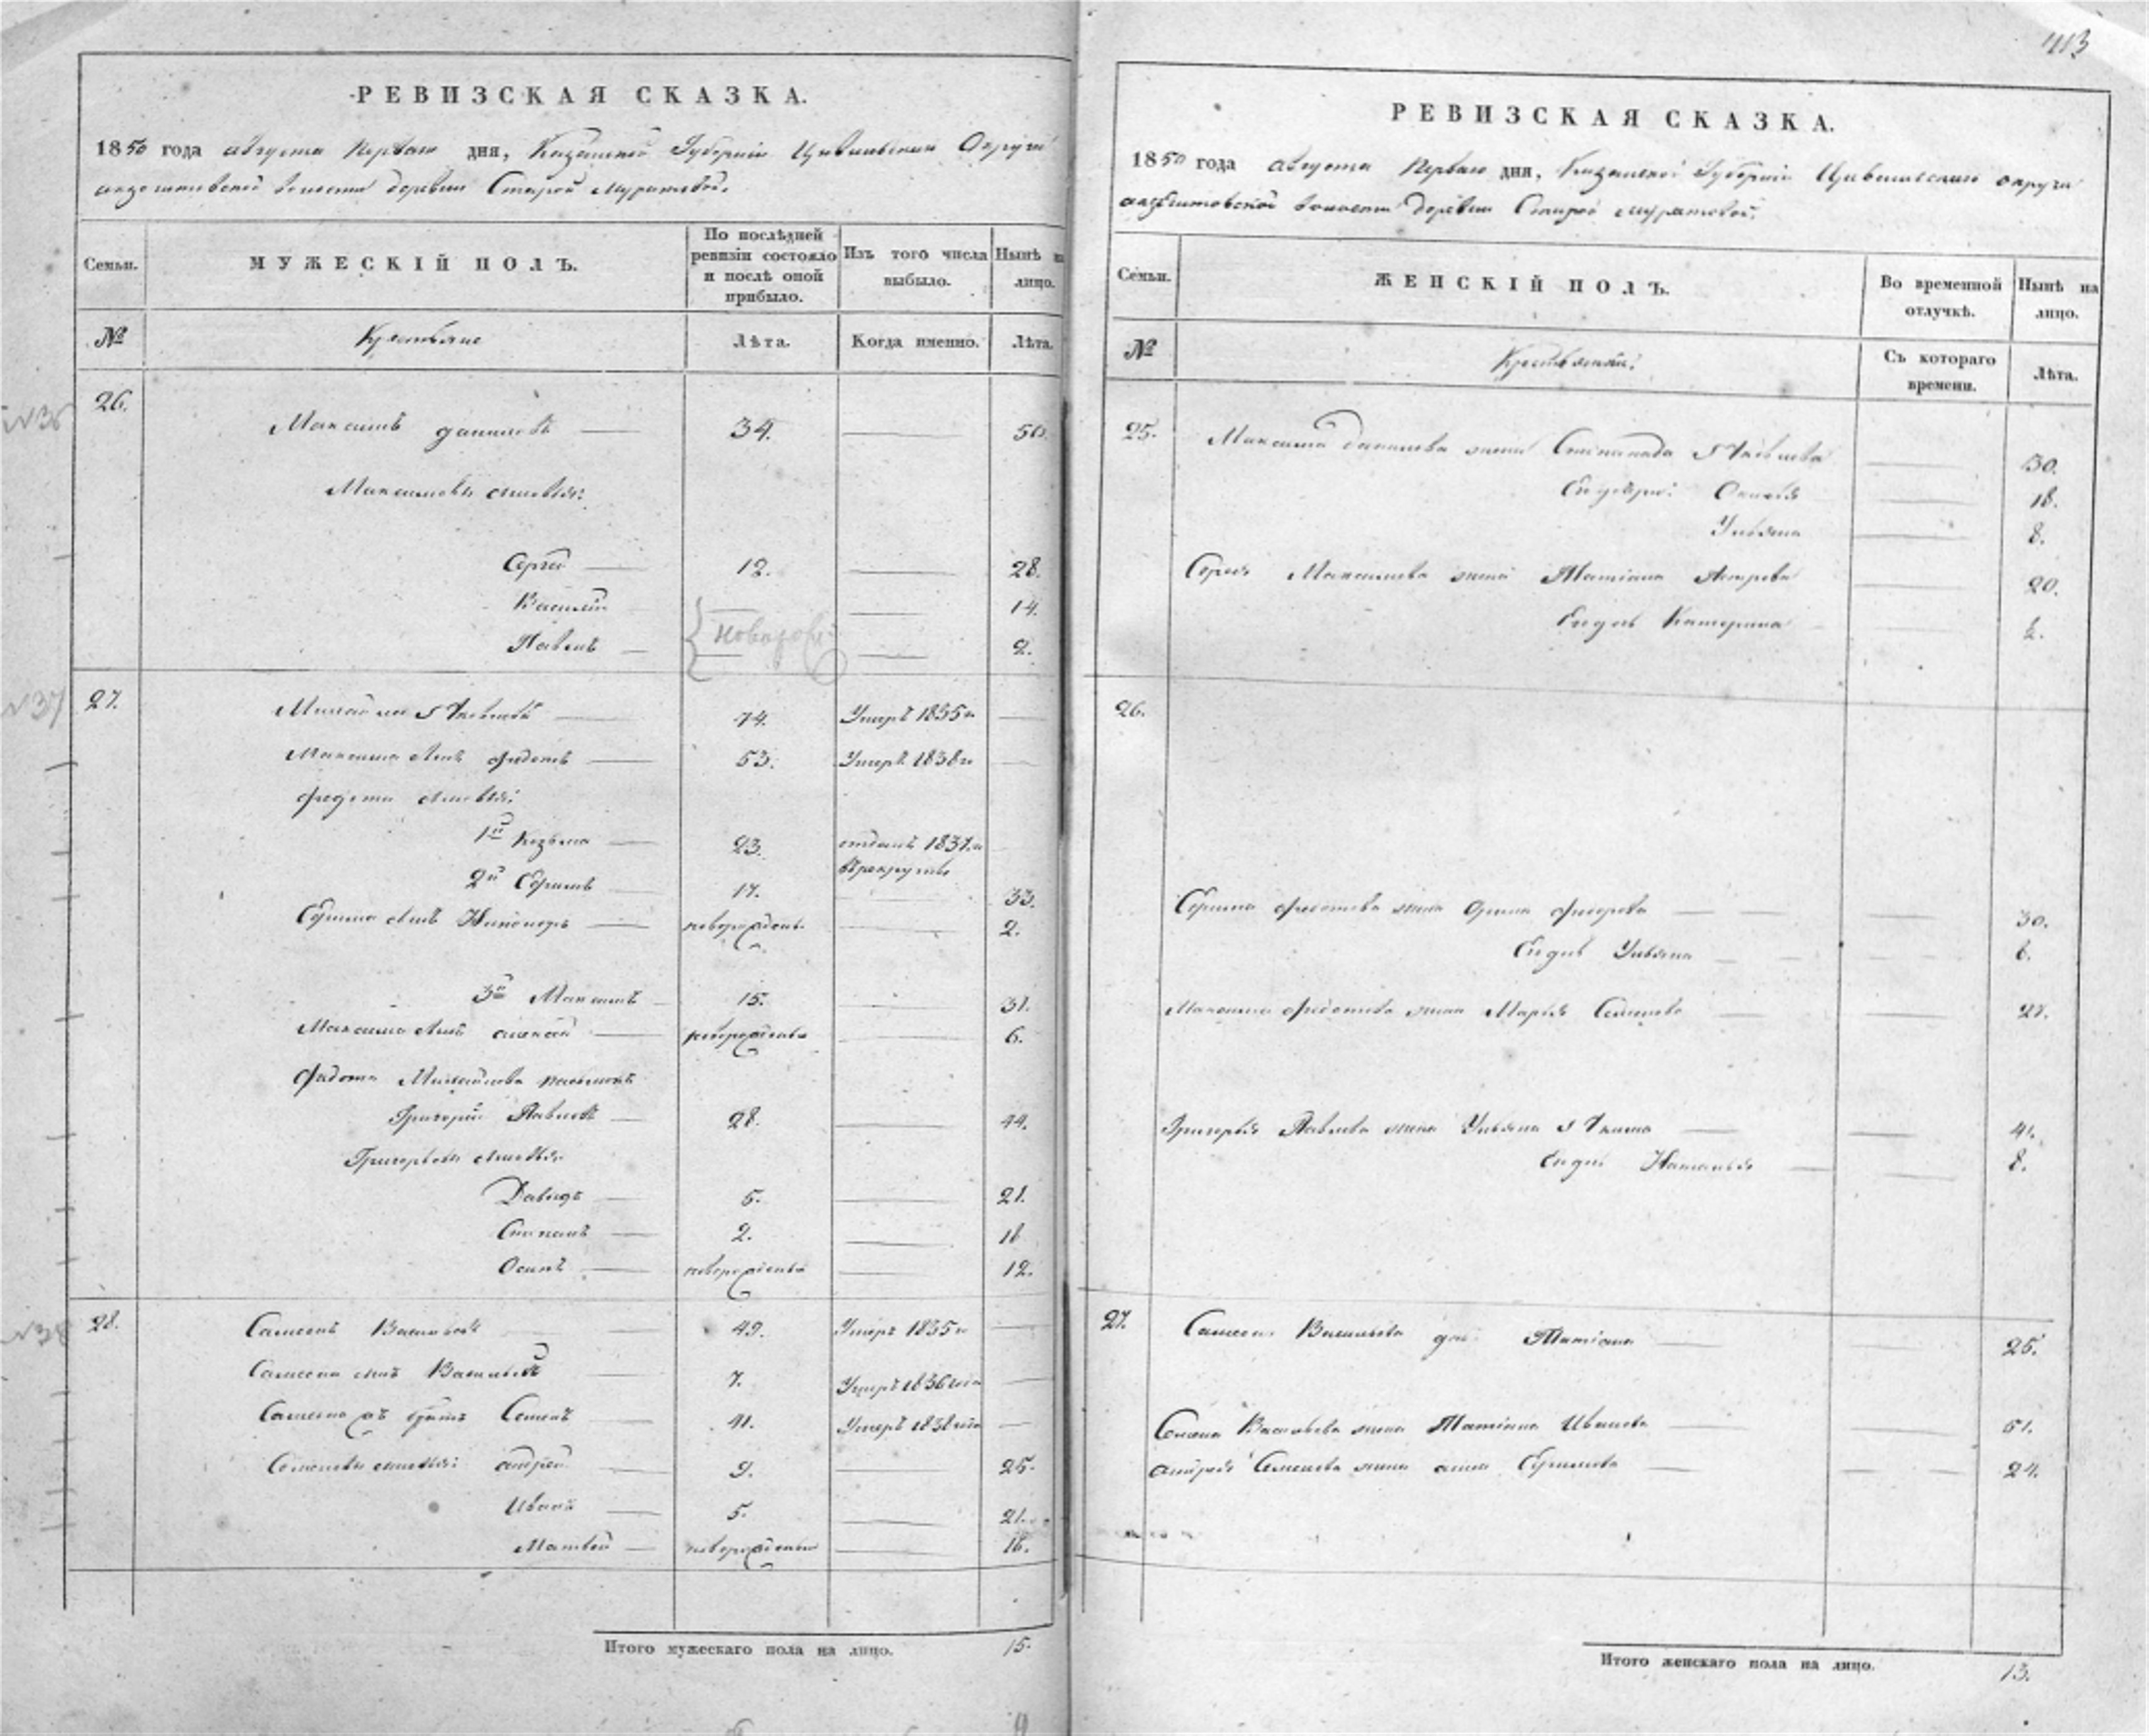 413
РЕВИЗСКАЯ СКАЗКА.
1850 года августа первого дня, Казанской Губернiи Цивильской Округи
волости деревни Старой Муратовой.
Семьи.
МУЖЕСКІЙ ПОЛЪ.
По послѣдней ревизіи состояло и послѣ оной прибыло.
Изъ того числа выбыло.
Нынѣ на лицо.
№
Крестьяне
Лѣта.
Когда именно.
Лѣта.
№36
26.
Максимъ Даниловъ 34. 50.
Максимовы сыновья:
Сергей 12. 28.
Василiй 14.
новорож
Павелъ 2.
№37
27.
74. Умеръ 1835 г.
сынъ Федотъ 53. Умеръ 1838 г.
Федота сыновья:
1й Козьма 23. отданъ 1837 г.
в рекруты
2й Ефимъ 17. 33.
Ефима сынъ Никоноръ новорожденъ 2.
3й Максимъ 15. 31.
Максима сынъ Алексей новорожденъ 6.
Федота Михайлова
Григорiй Павловъ 28. 44.
Григорьевы сыновья
Давидъ 5. 21.
Степанъ 2. 18
Осипъ новорожденъ 12.
№38
28.
Самсонъ Васильевъ 49. Умеръ 1835 г
Самсона сынъ Василiй 7. Умеръ 1836 года
Самсона братъ Семенъ 41. Умеръ 1838 года
Семеновы сыновья: Андрей 9. 25.
Иванъ 5. 21.
Матвей новорожденъ 16.
Итого мужескаго пола на лицо. 15.
РЕВИЗСКАЯ СКАЗКА.
1850 года августа первого дня, Казанской Губернiи Цивильскаго округа
волости деревни Старой Муратовой.
Семьи.
ЖЕНСКІЙ ПОЛЪ.
Во временной отлучкѣ.
Нынѣ на лицо.
№
Съ котораго времени.
Лѣта.
25.
Максима Данилова жена Степанида Яковлева 30.
Ея дочери: 18.
Ульяна 8.
Сергея Максимова жена Татiана Петрова 20.
Ея дочь Катерина ½.
26.
Ефима Федотова жена Орина Федорова 30.
Ея дочь Ульяна 6.
Максима Федотова жена Марья Семенова 27.
Григорья Павлова жена Ульяна 41.
Ея дочь Наталья 8.
27.
Самсона Васильева дочь Татiана 25.
Семена Васильева жена Татiана Иванова 51.
Андрея Семенова жена Анна Ефимова 24.
Итого женскаго пола на лицо. 13.